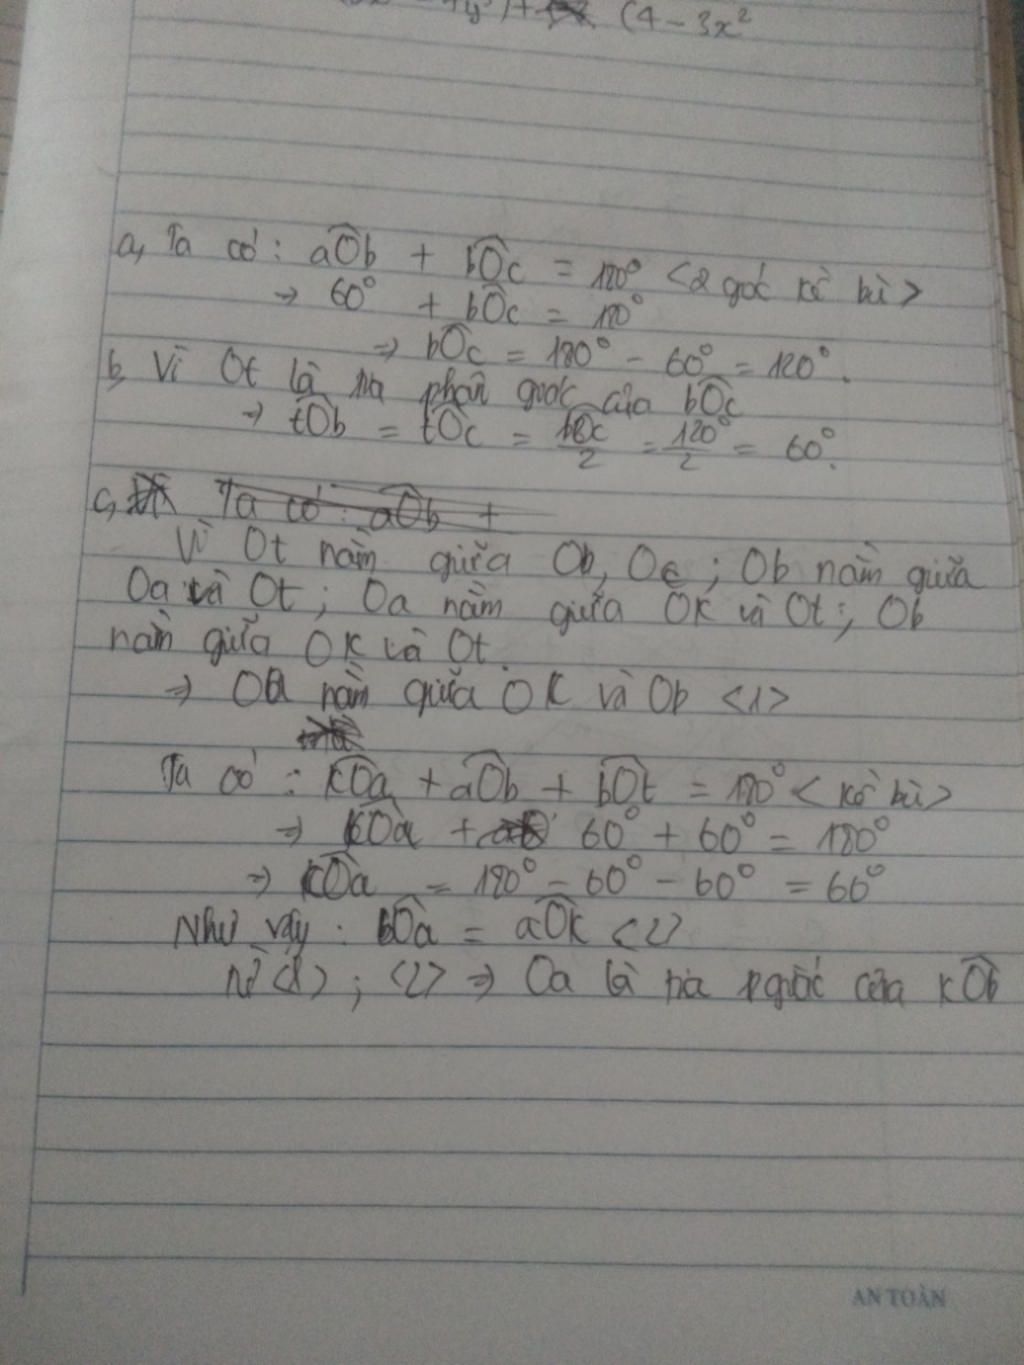 (4 - 3x²
a, Ta có: aÔb + bÔc = 180° <2 góc kề bù>
→ 60° + bÔc = 180°
⇒ bÔc = 180° - 60° = 120°.
b, Vì Ot là tia phân giác của bÔc
→ tÔb = tÔc = bÔc/2 = 120°/2 = 60°.
c, Ta có: aÔb +
Vì Ot nằm giữa Ob, Oc; Ob nằm giữa
Oa và Ot; Oa nằm giữa OK và Ot; Ob
nằm giữa OK và Ot.
⇒ Oa nằm giữa OK và Ob <1>
Ta có: KÔa + aÔb + bÔt = 180° <kề bù>
⇒ KÔa + 60° + 60° = 180°
⇒ KÔa = 180° - 60° - 60° = 60°
Như vậy: bÔa = aÔk <2>
Từ <1>; <2> ⇒ Oa là tia của KÔb
AN TOÀN